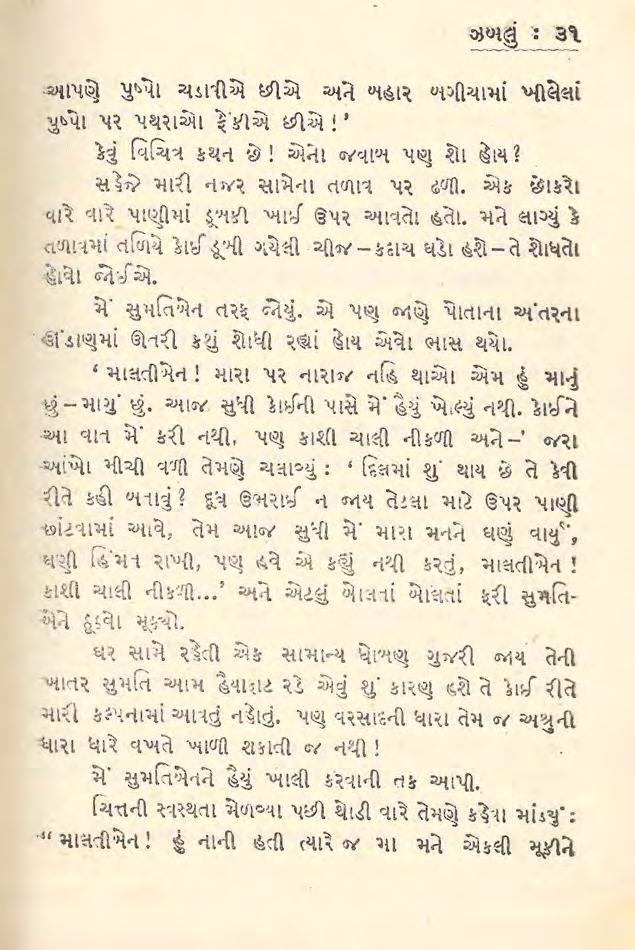 ઝબલું : ૩૧
આપણે પુષ્પો ચડાવીએ છીએ અને બહાર બગીચામાં ખીલેલાં
પુષ્પો પર પથરાઓ ફેંકીએ છીએ !’
કેવું વિચિત્ર કથન છે! એનો જવાબ પણ શો હોય?
સહેજે મારી નજર સામેના તળાવ પર ઢળી. એક છોકરો
વારે વારે પાણીમાં ડૂબકી ખાઈ ઉપર આવતો હતો. મને લાગ્યું કે
તળાવમાં તળિયે કોઈ ડૂબી ગયેલી ચીજ – કદાચ ઘડો હશે – તે શોધતો
હોવો જોઈએ.
મેં સુમતિબેન તરફ જોયું. એ પણ જાણે પોતાના અંતરના
ઊંડાણમાં ઊતરી કશું શોધી રહ્યાં હોય એવો ભાસ થયો.
‘ માલતીબેન ! મારા પર નારાજ નહિ થાઓ એમ હું માનું
છું – માગું છું. આજ સુધી કોઈની પાસે મેં હૈયું ખોલ્યું નથી. કોઈને
આ વાત મેં કરી નથી, પણ કાશી ચાલી નીકળી અને –’ જરા
આંખો મીચી વળી તેમણે ચલાવ્યું : ‘ દિલમાં શું થાય છે તે કેવી
રીતે કહી બતાવું? દૂધ ઉભરાઈ ન જાય તેટલા માટે ઉપર પાણી
છાંટવામાં આવે, તેમ આજ સુધી મેં મારા મનને ઘણું વાર્યું,
ઘણી હિંમત રાખી, પણ હવે એ કહ્યું નથી કરતું, માલતીબેન !
કાશી ચાલી નીકળી...’ અને એટલું બોલતાં બોલતાં ફરી સુમતિ-
બેને ઠૂઠવો મૂક્યો.
ઘર સામે રહેતી એક સામાન્ય ધોબણ ગુજરી જાય તેની
ખાતર સુમતિ આમ હૈયાફાટ રડે એવું શું કારણ હશે તે કોઈ રીતે
મારી કલ્પનામાં આવતું નહોતું. પણ વરસાદની ધારા તેમ જ અશ્રુની
ધારા ધારે વખતે ખાળી શકાતી જ નથી !
મેં સુમતિબેનને હૈયું ખાલી કરવાની તક આપી.
ચિત્તની સ્વસ્થતા મેળવ્યા પછી થોડી વારે તેમણે કહેવા માંડ્યું :
“ માલતીબેન ! હું નાની હતી ત્યારે જ મા મને એકલી મૂકીને